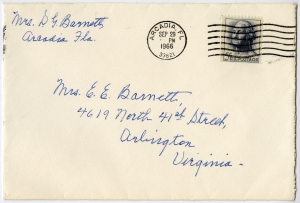 Mrs. D G Barnett
Arcadia Fla.
ARCADIA, FL
SEP 29
PM
1966
Mrs. E. E. Barnett,
4619 North 41st Street,
Arlington
Virginia-